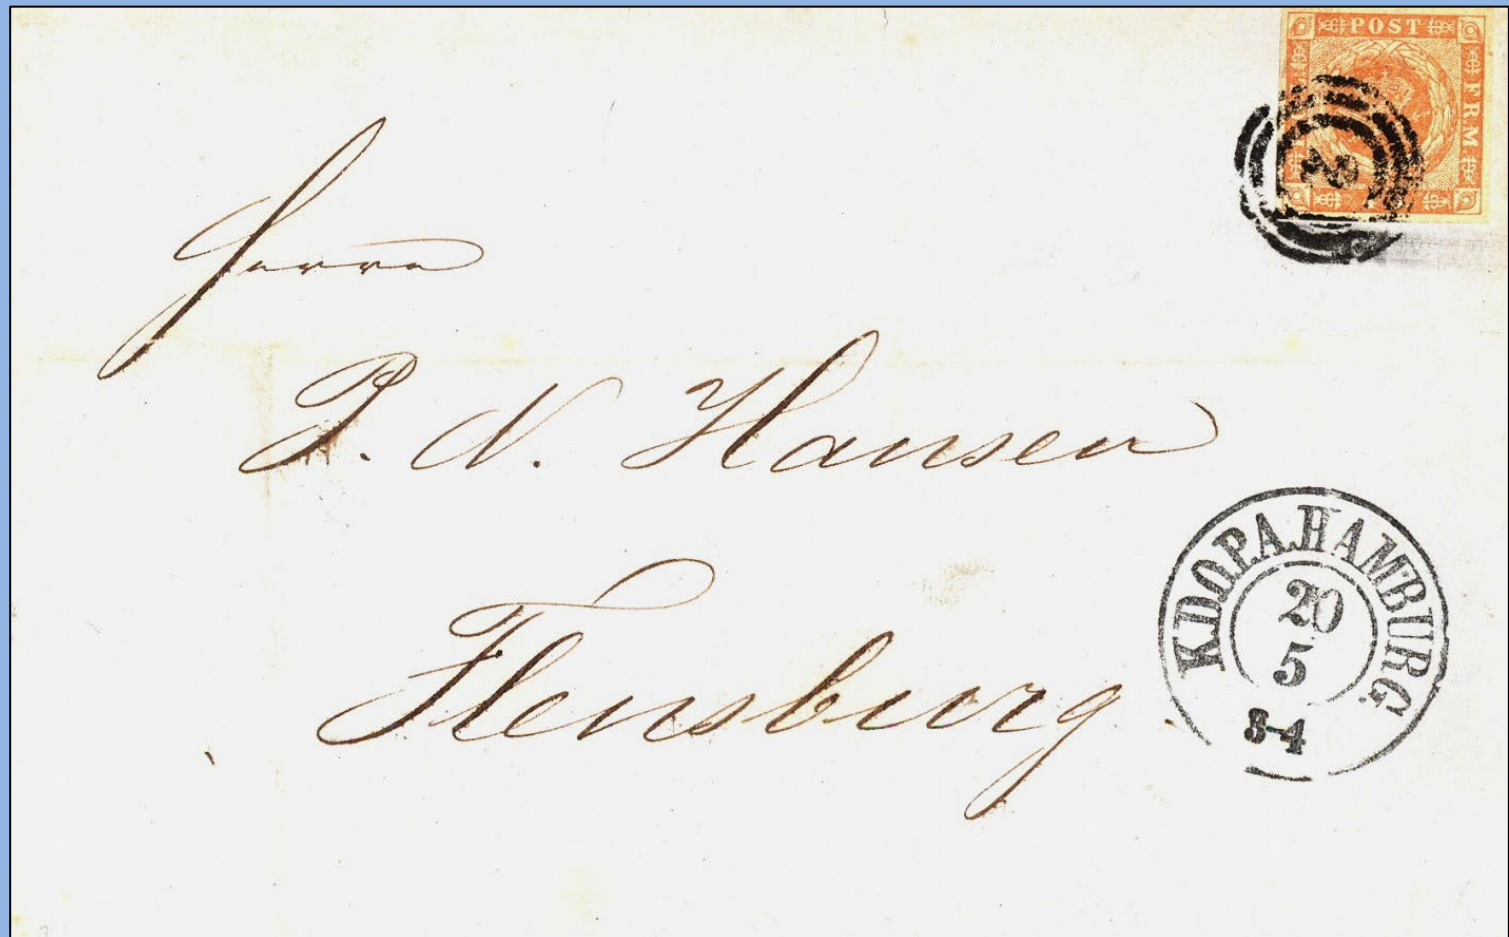 POST
FRM
Herrn
P. N. Hansen
Flensburg
K.D.O.P.A. HAMBURG
20
5
3-4